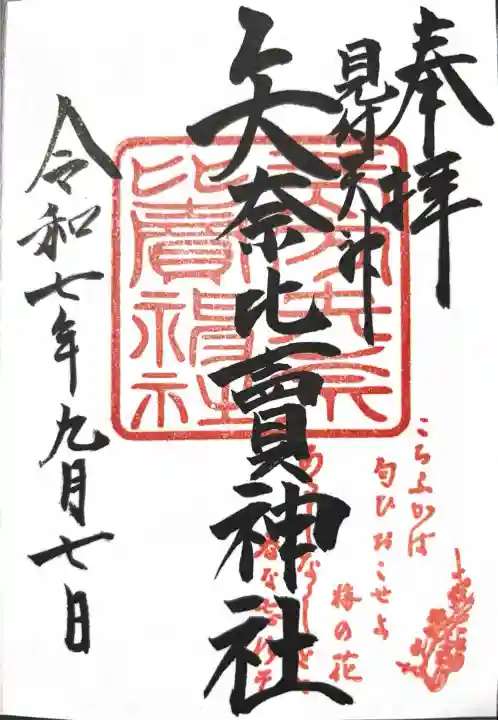 奉拝
見付天神
矢奈比賣神社
令和七年九月七日
こちふかば
匂ひおこせよ
梅の花
あるじなしと
春な